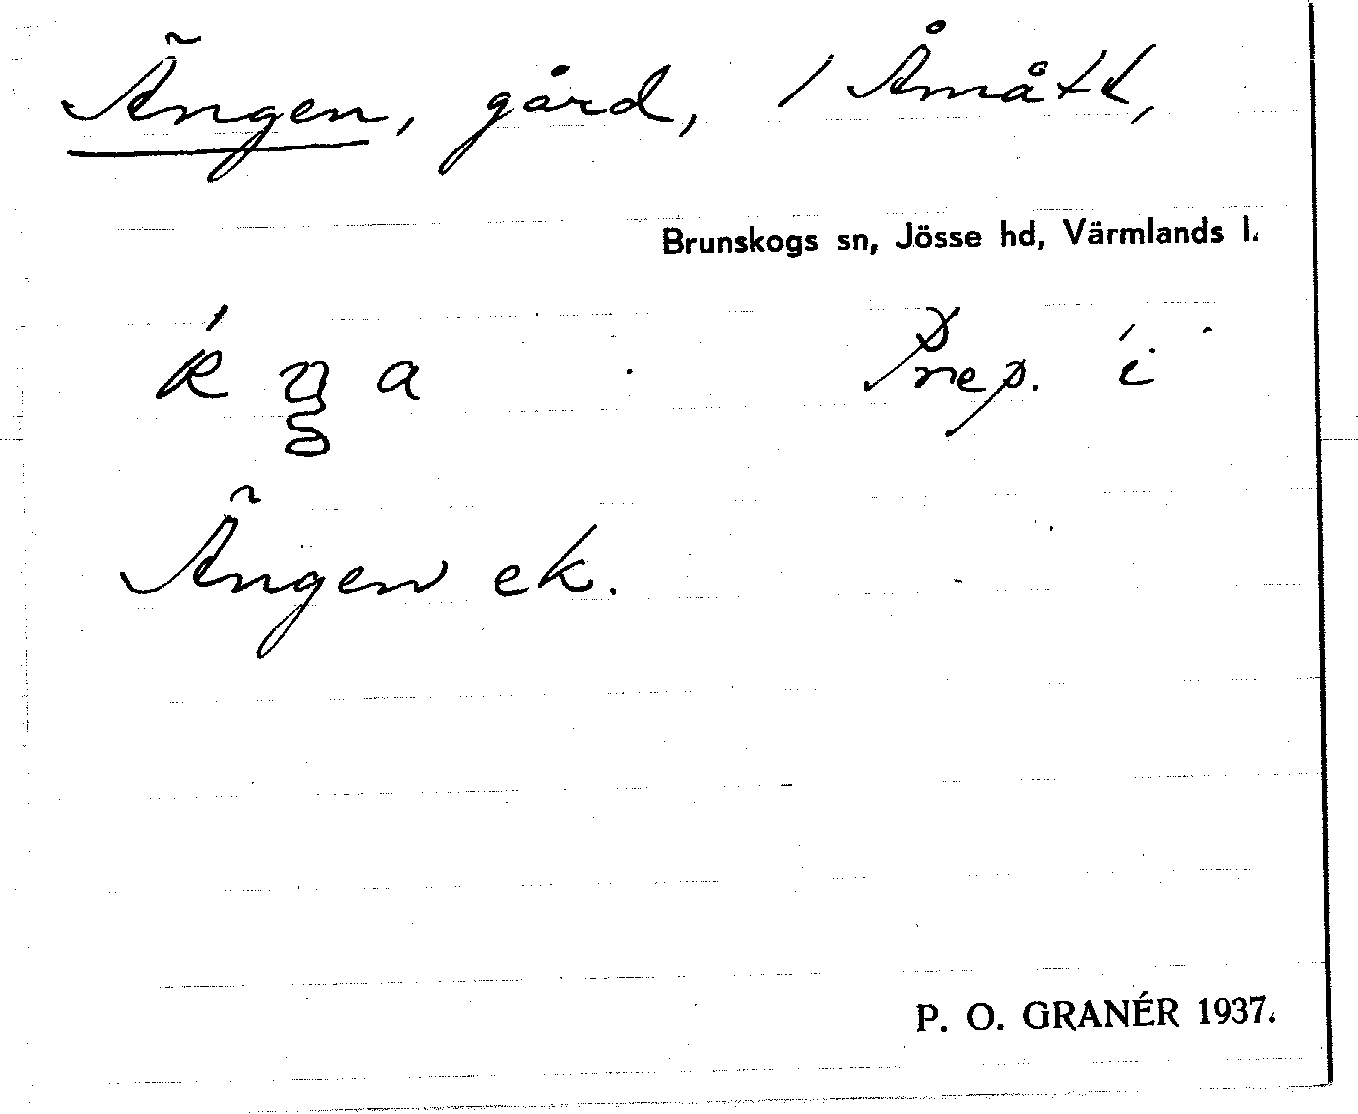 Ängen, gård, i Åmått,
Brunskogs sn, Jösse hd, Värmlands l.
Prep. i
Ängen ek.
P. O. GRANÉR 1937.